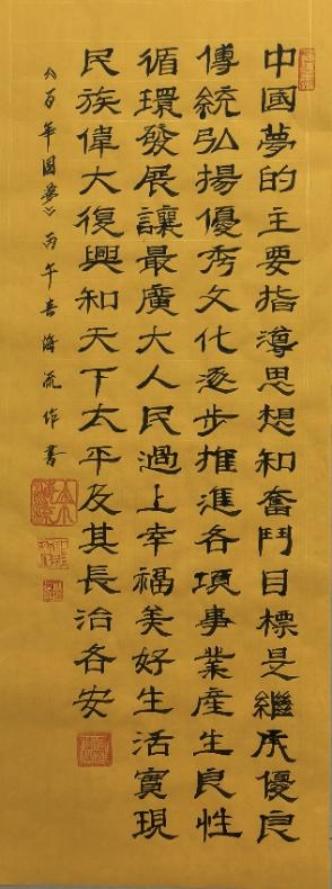 中國夢的主要指導思想和奮鬥目標是繼承優良
傳統弘揚優秀文化逐步推進各項事業產生良性
循環發展讓最廣大人民過上幸福美好生活實現
民族偉大復興和天下太平及其長治各安
《百年圓夢》丙午春海流作書